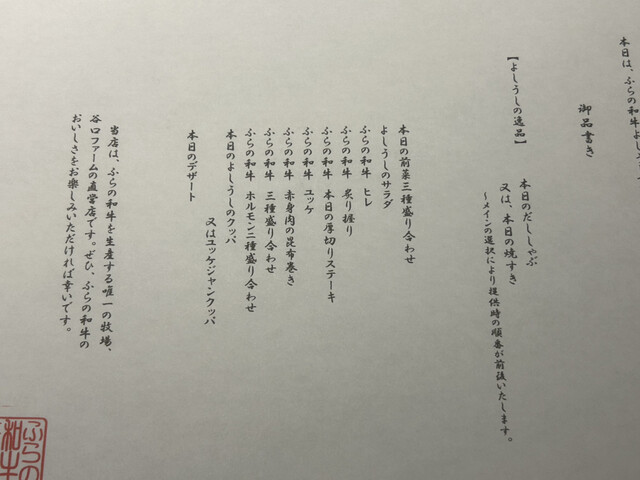 本日は、ふらの和牛よしうし
御品書き
【よしうしの逸品】
本日のだししゃぶ
又は、本日の焼すき
～メインの選択により提供時の順番が前後いたします。
本日の前菜三種盛り合わせ
よしうしのサラダ
ふらの和牛 ヒレ
ふらの和牛 炙り握り
ふらの和牛 本日の厚切りステーキ
ふらの和牛 ユッケ
ふらの和牛 赤身肉の昆布巻き
ふらの和牛 三種盛り合わせ
ふらの和牛 ホルモン二種盛り合わせ
本日のよしうしのクッパ
又はユッケジャンクッパ
本日のデザート
当店は、ふらの和牛を生産する唯一の牧場、
谷口ファームの直営店です。ぜひ、ふらの和牛の
おいしさをお楽しみいただければ幸いです。
ふらの
和牛